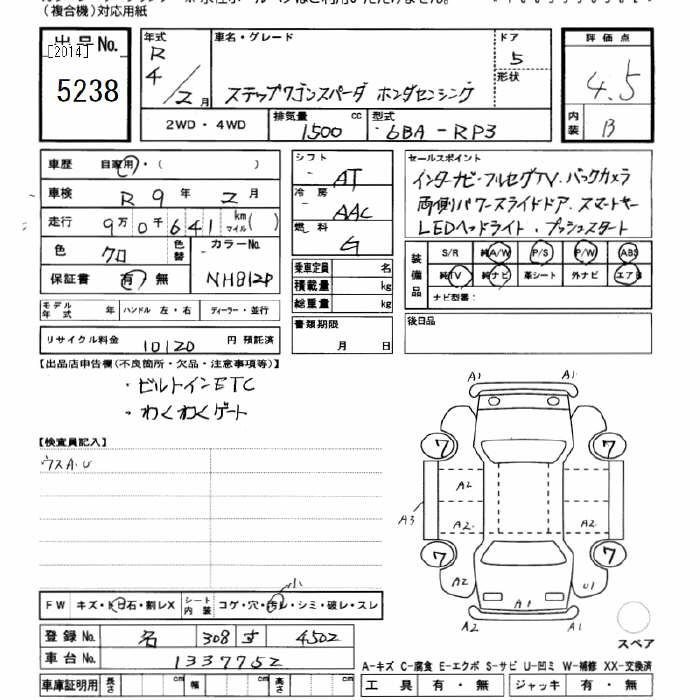 (複合機)対応用紙
出品No.
[2014]
5238
年式 R 4/2月
車名・グレード
ステップワゴンスパーダ ホンダセンシング
ドア 5
形状
評価点
4.5
内装 B
2WD・4WD
排気量 1500 cc
型式 6BA-RP3
車歴 自家用・( )
車検 R 9 年 2 月
走行 9万0千641 km マイル( )
色 クロ 色替
カラーNo. NH812P
保証書 有・無
シフト AT
冷房 AAC
燃料 G
乗車定員 名
積載量 kg
総重量 kg
書類期限
月 日
セールスポイント
インターナビ・フルセグTV・バックカメラ
両側パワースライドドア・スマートキー
LEDヘッドライト・プッシュスタート
装備品
S/R 純A/W P/S P/W ABS
純TV 純ナビ 革シート 外ナビ エアB
ナビ型番:
後日品
モデル年式 年 ハンドル 左・右 ディーラー・並行
リサイクル料金 10120 円 預託済
【出品店申告欄(不良箇所・欠品・注意事項等)】
・ビルトインETC
・わくわくゲート
【検査員記入】
ウスA.U
A1 A1
7 7
A2
A3 A2 A2
7 7
A2 U1
A1
A1 A1
スペア
小
FW キズ・ト石・割レX シート内装 コゲ・穴・汚レ・シミ・破レ・スレ
登録No. 名 308 す 4502
車台No. 1337752
車庫証明用 長さ cm 幅 cm 高さ cm
A-キズ C-腐食 E-エクボ S-サビ U-凹ミ W-補修 XX-交換済
工具 有・無 ジャッキ 有・無